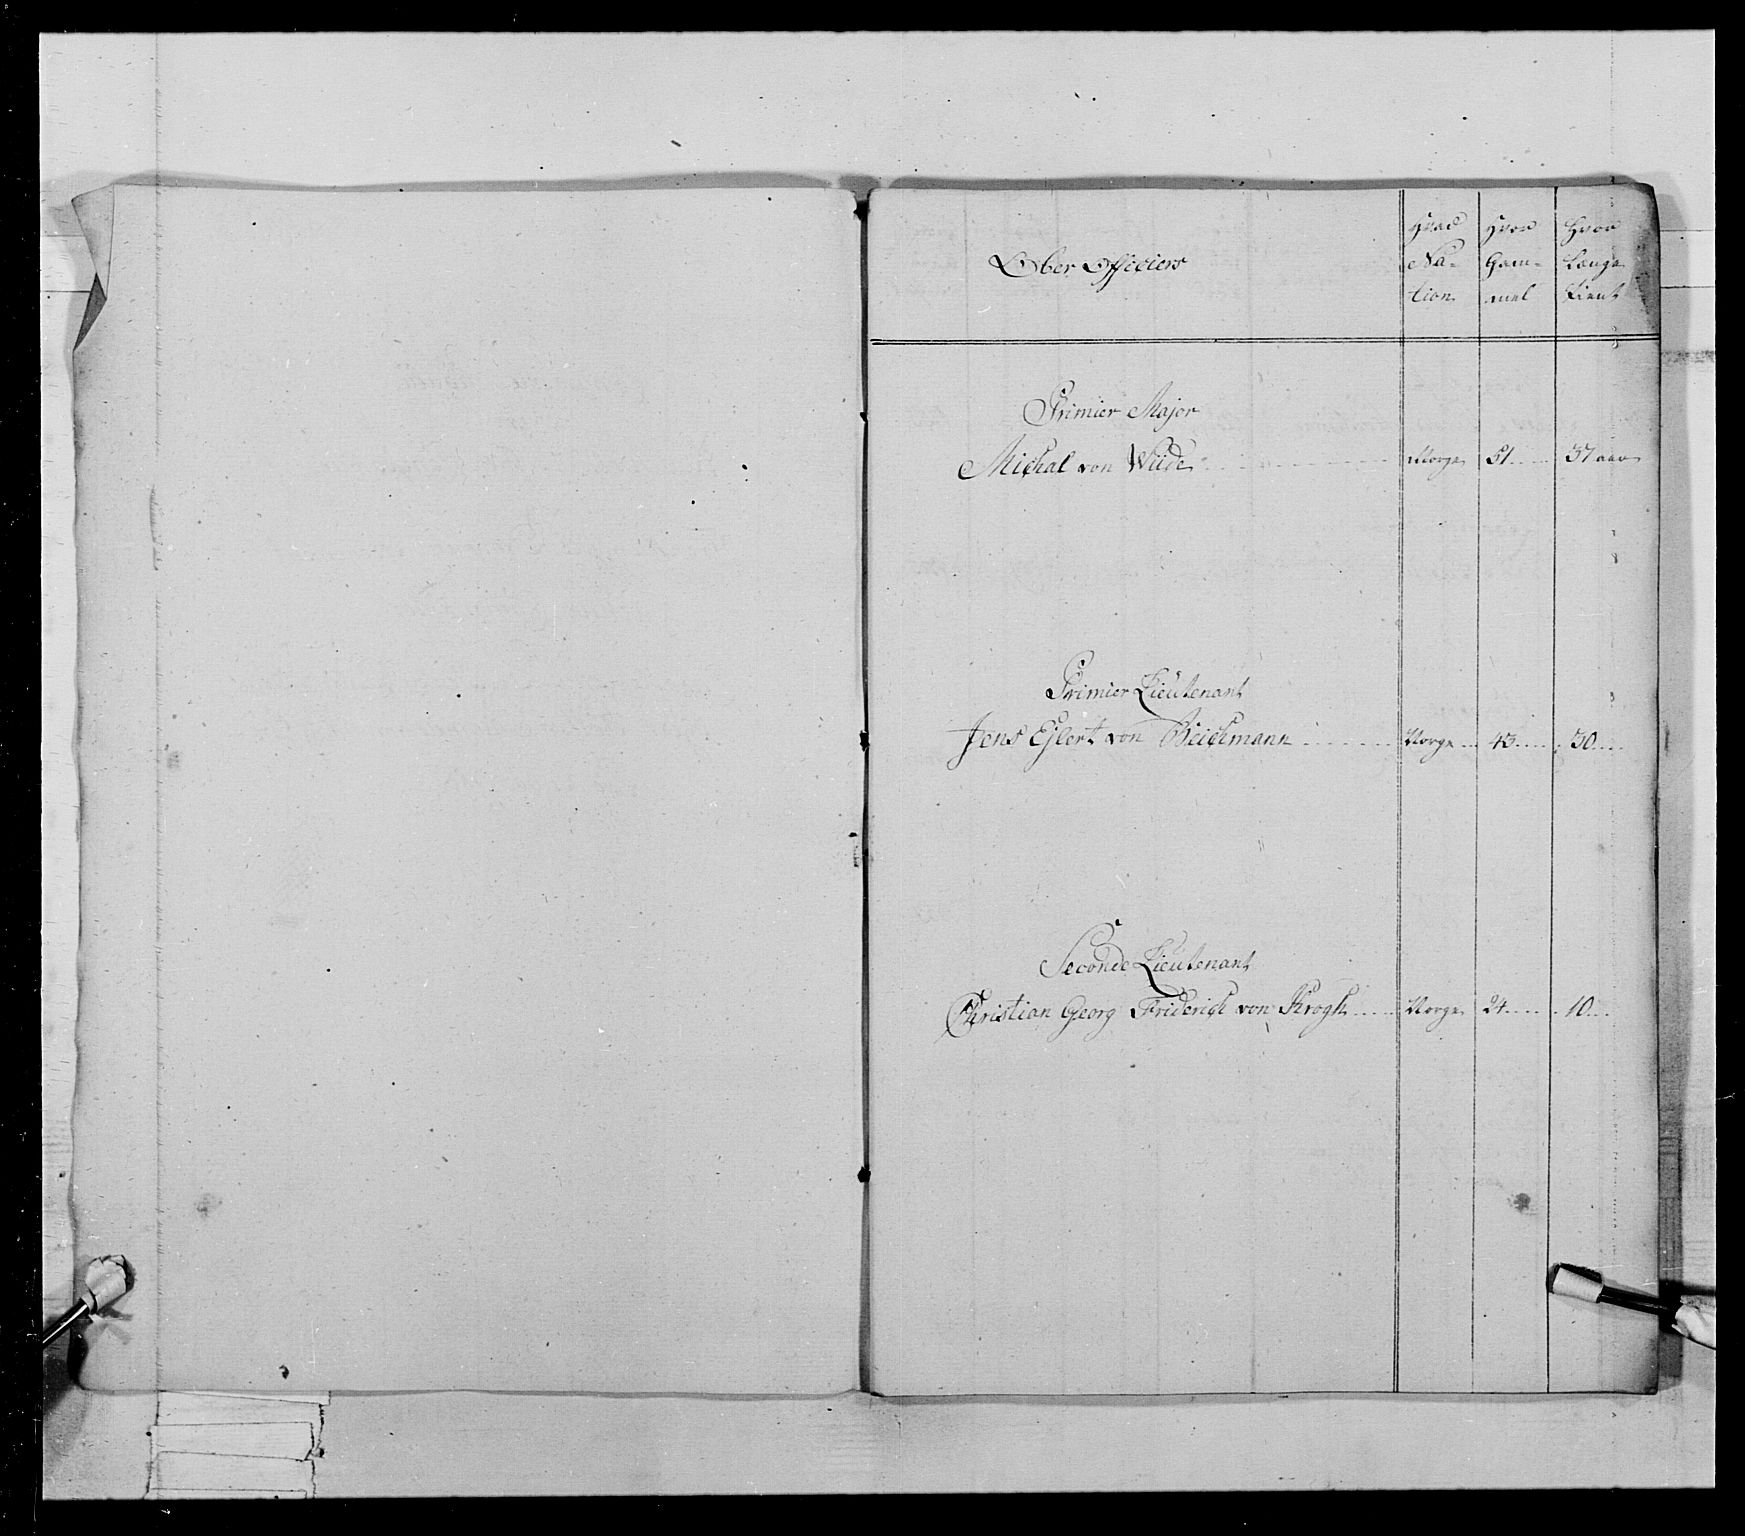 Ober Officiers
Hvad Na- tion
Hvor Gam- mel
Hvor Længe Tient
Primier Major
Michal von Wiide Norge 51 37 aar
Primier Lieutenant
Jens Ejlert von Beichmann Norge 43 30
Seconde Lieutenant
Christian Georg Friderich von Krogh Norge 24 10